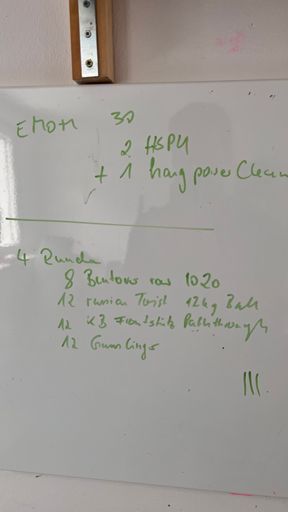 EMOM 30
2 HSPU
+ 1 hang power Clean
4 Runden
8 Bentover row 1020
12 russian Twist 12kg Ball
12 KB Frontstütz Pullthrough
12
III